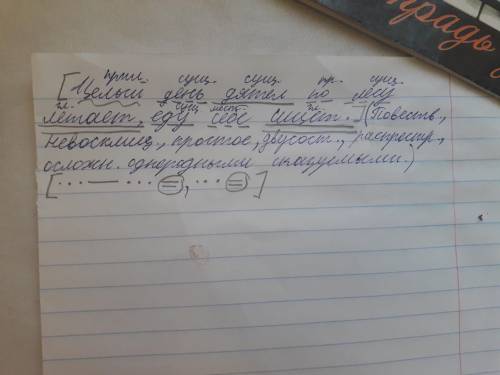 прил. сущ. сущ. пр. сущ.
[Целый день дятел по лесу
гл. сущ. мест. гл.
летает, еду себе ищет.] (Повеств.,
невосклиц., простое, двусост., распростр.,
осложн. однородными сказуемыми.)